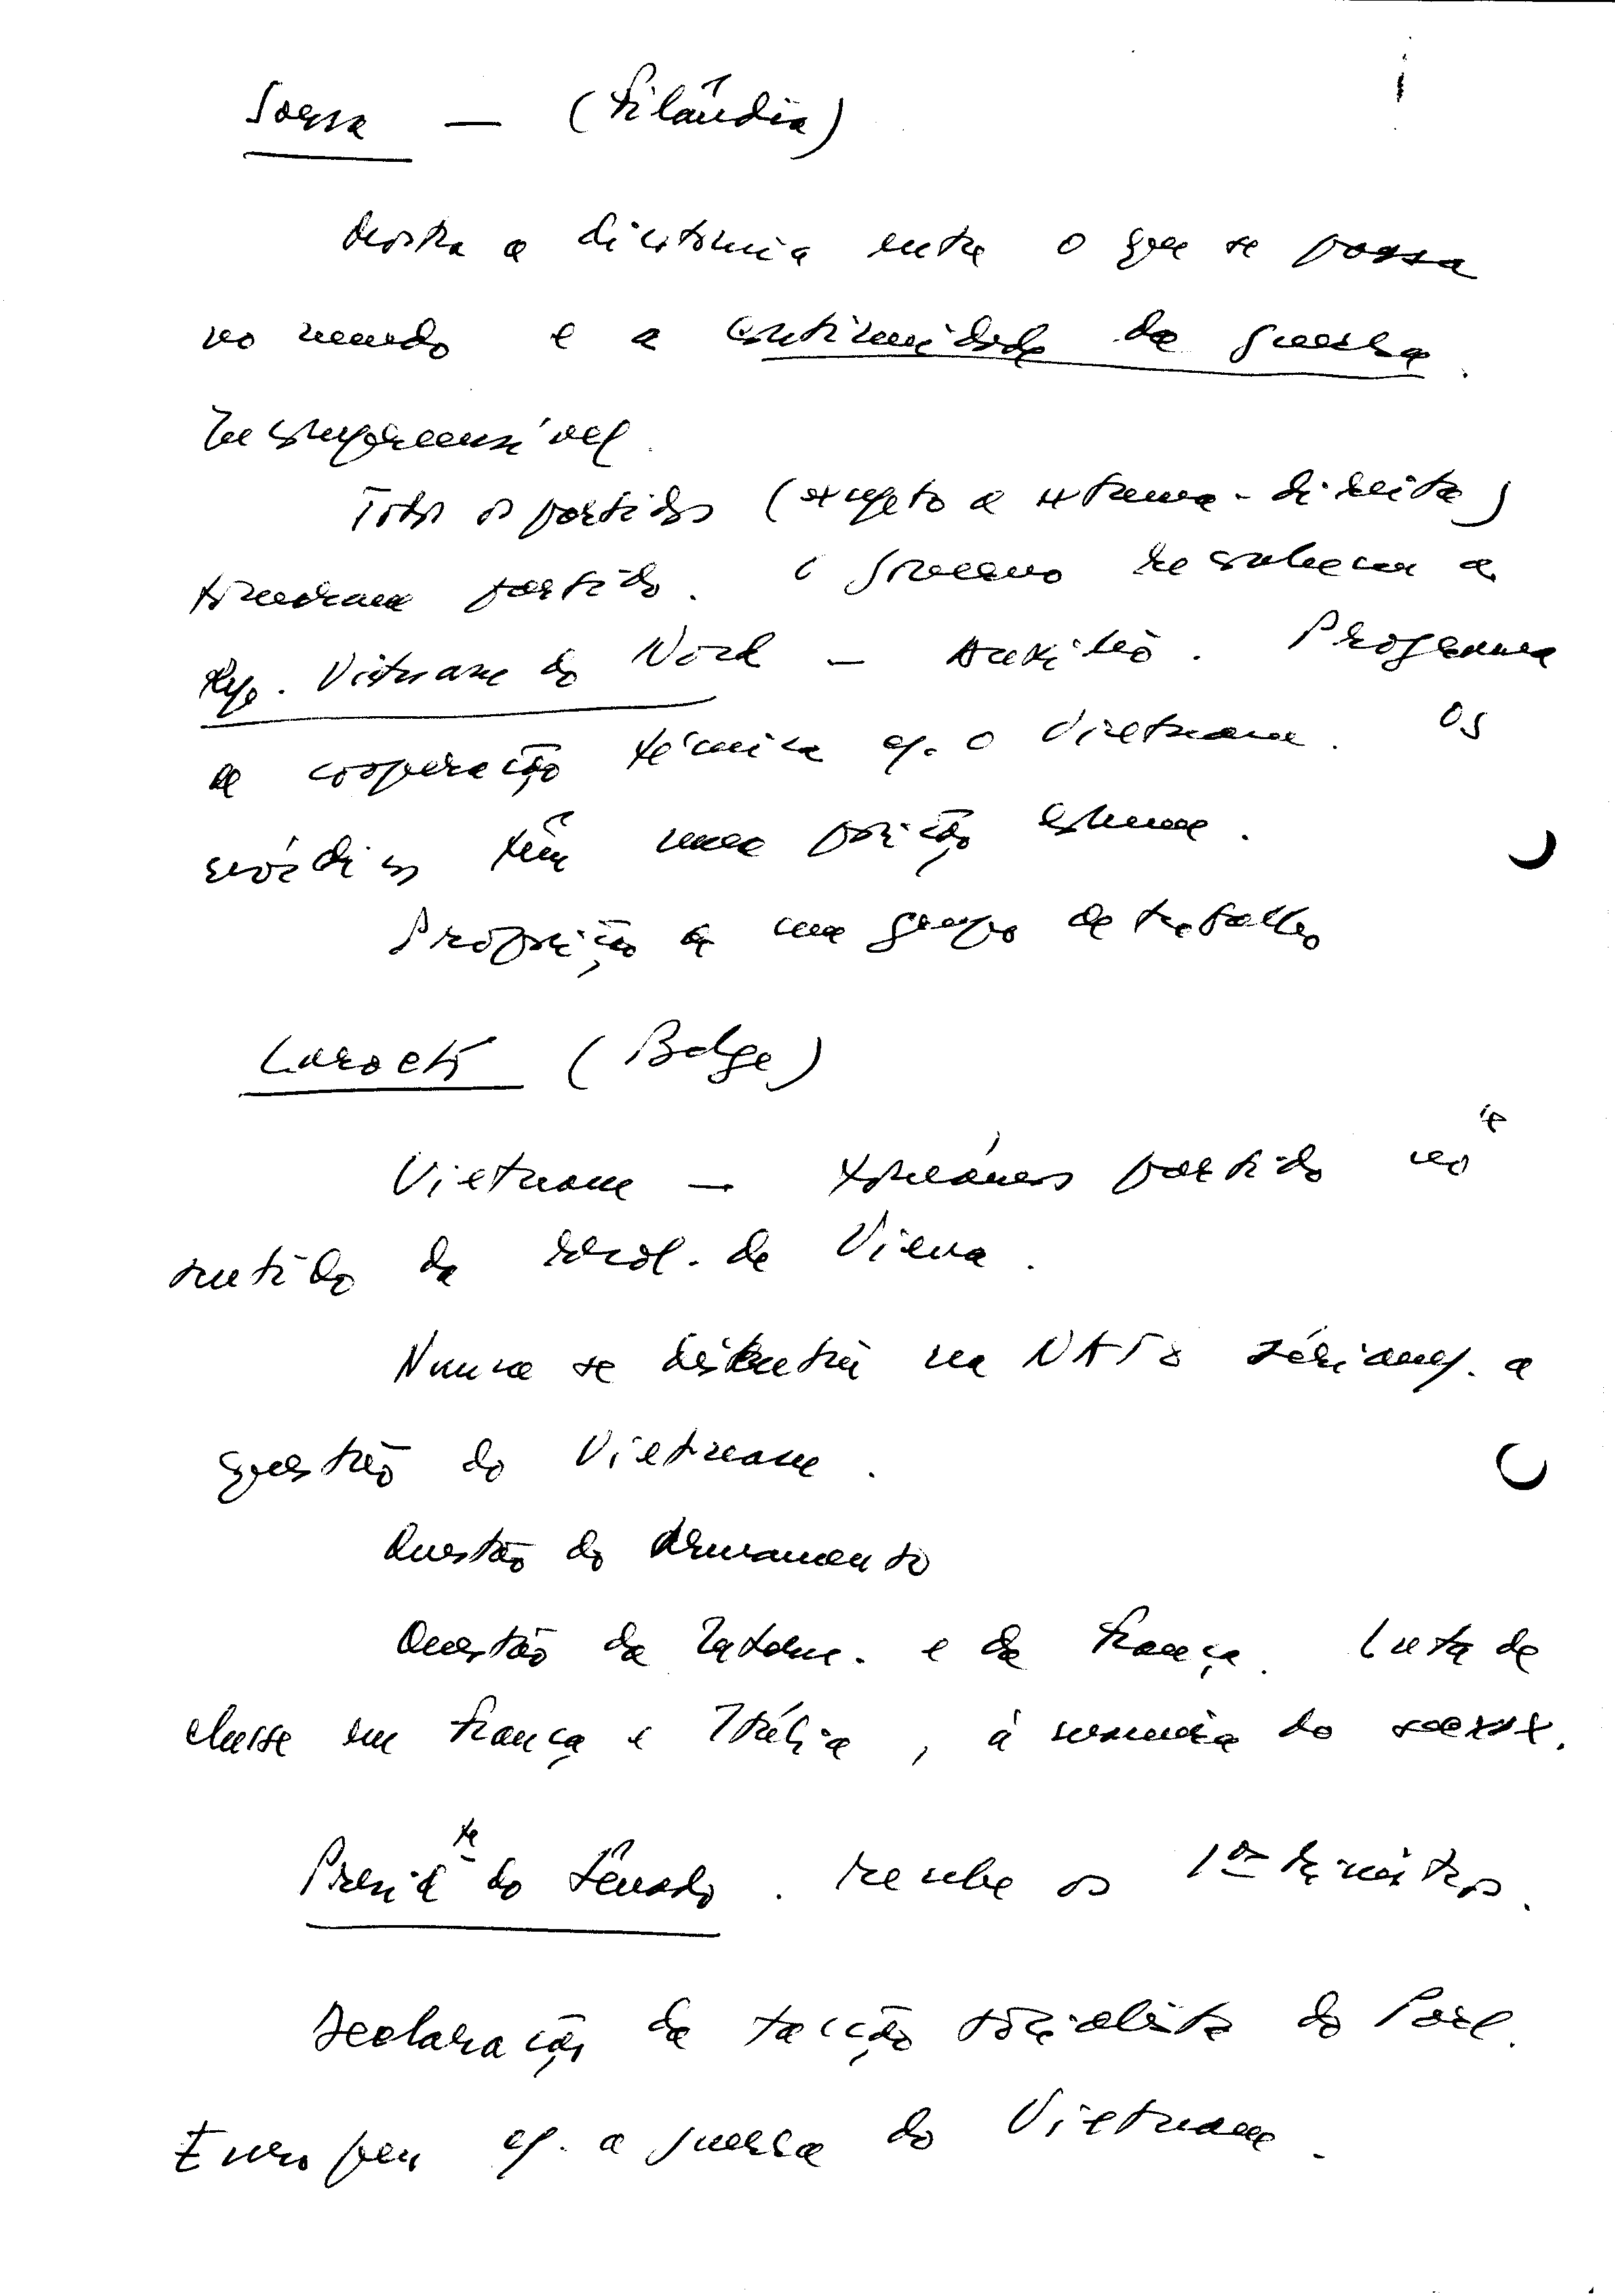 Sorsa — (Filândia)
Mostra a dicotomia entre o que se passa
no mundo e a continuidade da guerra.
Incompreensível.
Todos os partidos (excepto a extrema-direita)
tomaram partido. O governo reconhecer a
Rep. Vietname do Nord — Auxílio. Programa
de cooperação técnica c/. o Vietname. Os
nórdicos têm uma posição comum.
Proposição de um grupo de trabalho
(Belge)
Vietname — tomámos partido no
sentido da resol. de Viena.
Nunca se discutiu na NATO sériam/. a
questão do Vietname.
Questão do Armamento
Questão da e da França. Luta de
classe em França e Itália, à do
Presid te do Senado. recebe os 1os Ministros.
Declaração da facção socialista do Parl.
Europeu c/. a guerra do Vietname.